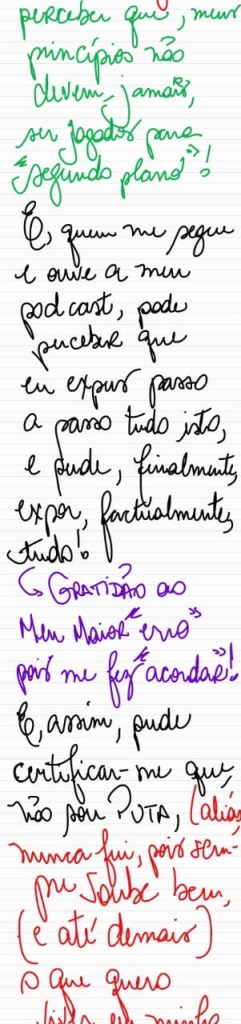 perceber que, meus
princípios não
devem, jamais,
ser jogados para
"segundo plano"!
E, quem me segue
e ouve a meu
podcast, pode
perceber que
eu expus passo
a passo tudo isto,
e pude, finalmente,
expor, factualmente,
tudo!
↳ GRATIDÃO ao
Meu Maior "erro"
pois me fez "acordar"!
E, assim, pude
certificar-me que,
não sou PUTA, (aliás,
nunca fui, pois sem-
pre soube bem,
(e até demais)
o que quero